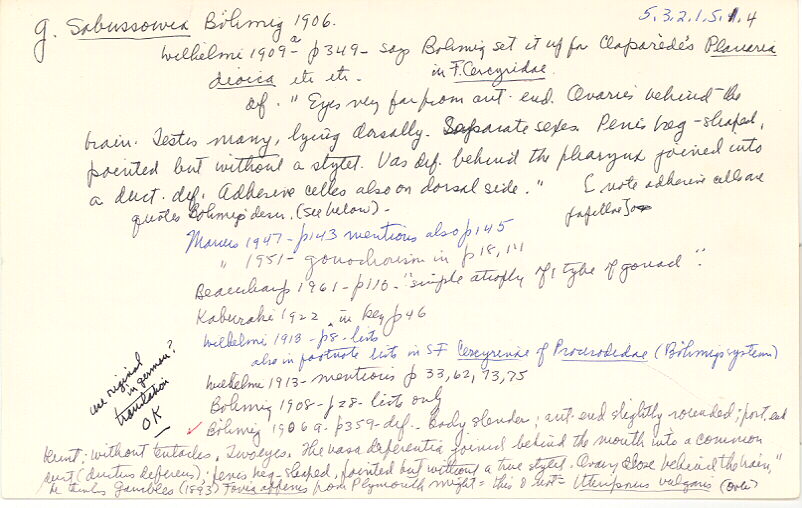 g. Sabussowia Böhmig 1906. 5.3.2.1.5.1.4
Wilhelmi 1909a - p349 - says Böhmig set it up for Claparède's Planaria
dioica etc etc. in F. Cercyridae.
def. "Eyes very far from ant. end. Ovaries behind the
brain. Testes many, lying dorsally. Separate sexes. Penis peg-shaped,
pointed but without a stylet. Vas def. behind the pharynx joined into
a duct. def. Adhesive cells also on dorsal side." [note adhesive cells are
quotes Böhmig's descr. (see below). papillae]
Marcus 1947 - p143 mentions also p145
" 1951 - gonochorism in p18, 111
Beauchamp 1961 - p110 - "simple atrophy of 1 type of gonad".
Kaburaki 1922 in key p46
Wilhelmi 1913 - p8 - lists
also in footnote lists in SF Cercyrinae of Procerodidae (Böhmig's system)
Wilhelmi 1913 - mentions p 33, 62, 73, 75
Böhmig 1908 - p28 - lists only
use original in german? translation OK
✓ Böhmig 1906a - p359 - def - body slender; ant. end slightly rounded; post. end
blunt; without tentacles. Two eyes. The vasa deferentia joined behind the mouth into a common
duct (ductus deferens); penis peg-shaped, pointed but without a true stylet. Ovary close behind the brain."
he thinks Gambles (1893) Fovia affinis from Plymouth might = this & not = Uteriporus vulgaris